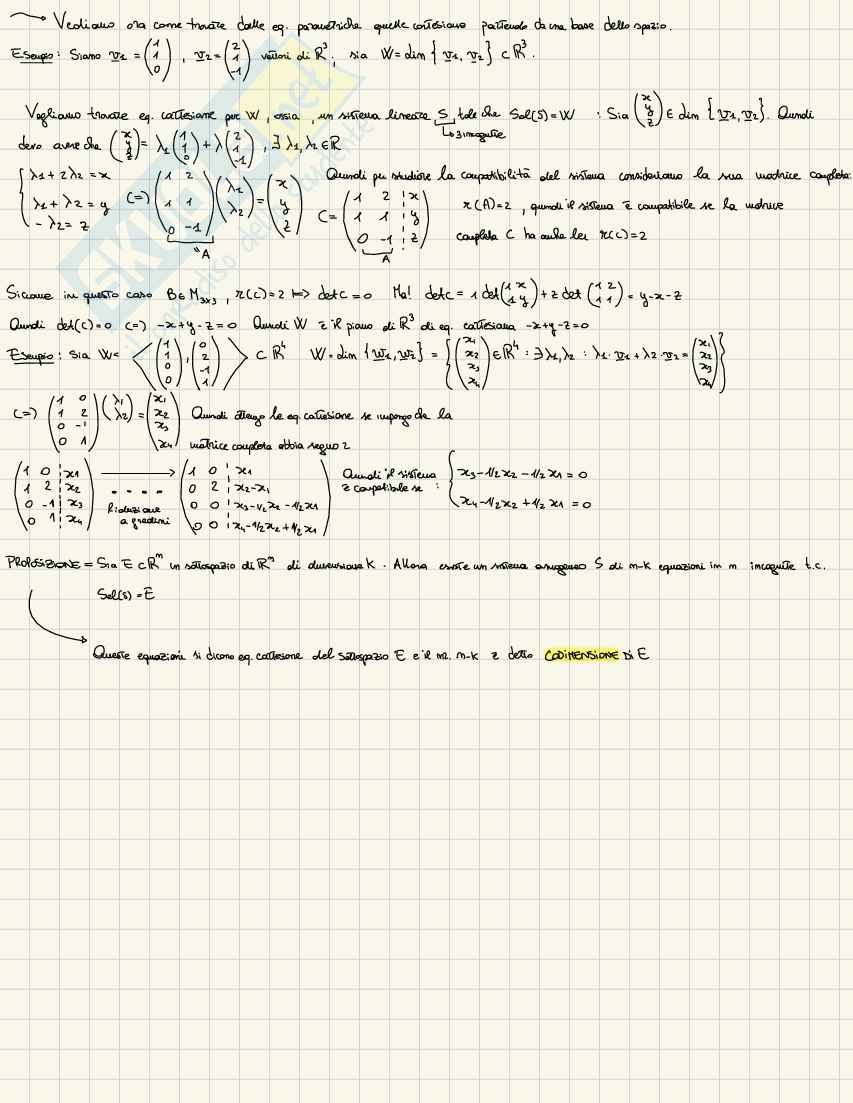 → Vediamo ora come trovare dalle eq. parametriche quelle cartesiane partendo da una base dello spazio.
Esempio: Siano v1 = (1 1 0), v2 = (2 1 -1) vettori di R³, sia W = lim { v1, v2 } ⊂ R³.
Vogliamo trovare eq. cartesiane per W, ossia, un sistema lineare S, tale che Sol(S) = W : Sia (x y z) ∈ lim { v1, v2 }. Quindi
↳ 3 incognite
devo avere che (x y z) = λ1 (1 1 0) + λ (2 1 -1), ∃ λ1, λ2 ∈ R
{ λ1 + 2λ2 = x
λ1 + λ2 = y
- λ2 = z
(=) (1 2 / 1 1 / 0 -1) (λ1 λ2) = (x y z)
"A
Quindi per studiare la compatibilità del sistema consideriamo la sua matrice completa:
C = (1 2 ¦ x / 1 1 ¦ y / 0 -1 ¦ z)
A
r(A)=2, quindi il sistema è compatibile se la matrice
completa C ha anche lei r(C)=2
Siccome in questo caso B ∈ M3x3, r(C)=2 ⟺ det C = 0 Ma! det C = 1 det (1 x / 1 y) + z det (1 2 / 1 1) = y-x-z
Quindi det(C)=0 (=) -x+y-z=0 Quindi W è il piano di R³ di eq. cartesiana -x+y-z=0
Esempio: Sia W = < (1 1 0 0), (0 2 -1 1) > ⊂ R⁴ W = lim { w1, w2 } = { (x1 x2 x3 x4) ∈ R⁴ : ∃ λ1, λ2 : λ1·v1 + λ2·v2 = (x1 x2 x3 x4) }
(=) (1 0 / 1 2 / 0 -1 / 0 1) (λ1 λ2) = (x1 x2 x3 x4) Quindi ottengo le eq. cartesiane se impongo che la
matrice completa abbia rango 2
(1 0 ¦ x1 / 1 2 ¦ x2 / 0 -1 ¦ x3 / 0 1 ¦ x4) → .... Riduzione a gradini (1 0 ¦ x1 / 0 2 ¦ x2-x1 / 0 0 ¦ x3-1/2x2-1/2x1 / 0 0 ¦ x4-1/2x2+1/2x1)
Quindi il sistema è compatibile se :
{ x3 - 1/2x2 - 1/2x1 = 0
x4 - 1/2x2 + 1/2x1 = 0
PROPOSIZIONE = Sia E ⊂ Rᵐ un sottospazio di Rᵐ di dimensione K. Allora esiste un sistema omogeneo S di m-k equazioni in m incognite t.c.
Sol(S) = E
Queste equazioni si dicono eq. cartesiane del sottospazio E e il m-k è detto CODIMENSIONE DI E
SKUOLA.net
il paradiso dello studente